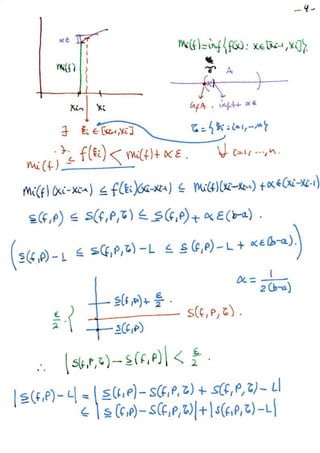 -4-
αε
mi(f)
xi-1 xi
mi(f)=inf{f(x) : x∈[xi-1, xi]}.
A
inf A inf A + αε
∃ ξi ∈ [xi-1, xi] τ = {ξi : i=1,…,n}
∋. mi(f) ≤ f(ξi) < mi(f) + αε. ∀ i=1,…,n.
mi(f)(xi-xi-1) ≤ f(ξi)(xi-xi-1) ≤ mi(f)(xi-xi-1) + αε(xi-xi-1)
S(f,P) ≤ S(f,P,τ) ≤ S(f,P) + αε(b-a).
(S(f,P)-L ≤ S(f,P,τ)-L ≤ S(f,P)-L + αε(b-a).)
α = 1/2(b-a)
S(f,P) + ε/2.
ε/2. { S(f,P,τ).
S(f,P)
∴ |S(f,P,τ) - S(f,P)| < ε/2.
|S(f,P)-L| = |S(f,P) - S(f,P,τ) + S(f,P,τ) - L|
≤ |S(f,P) - S(f,P,τ)| + |S(f,P,τ) - L|